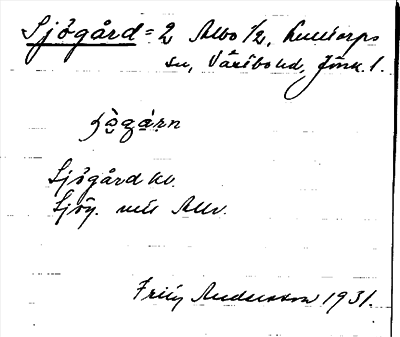 Sjögård = 2 Albo 1/2, Kulltorps
sn, Västbo hd, Jönk. l.
Sjögård kv.
Sjög. mil Allv.
Fritz Andersson 1931.